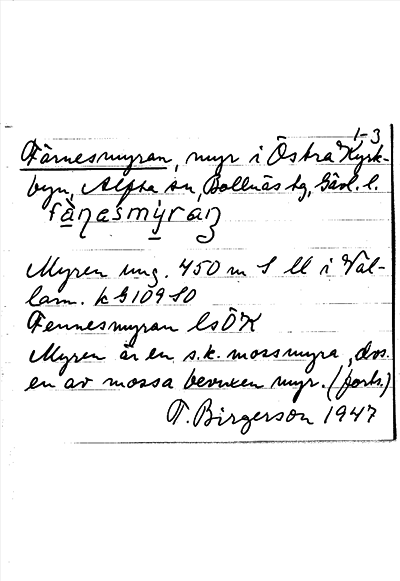 1-3
Färnesmyran, myr i Östra Kyrk-
byn, Alfta sn, Bollnäs tg, Gävl. l.
Myren ung. 450 m S ll i Val-
lam. k G 109 SO
Fennesmyran lsÖK
Myren är en s.k. mossmyra, dvs.
en av mossa bevuxen myr. (forts.)
T. Birgerson 1947